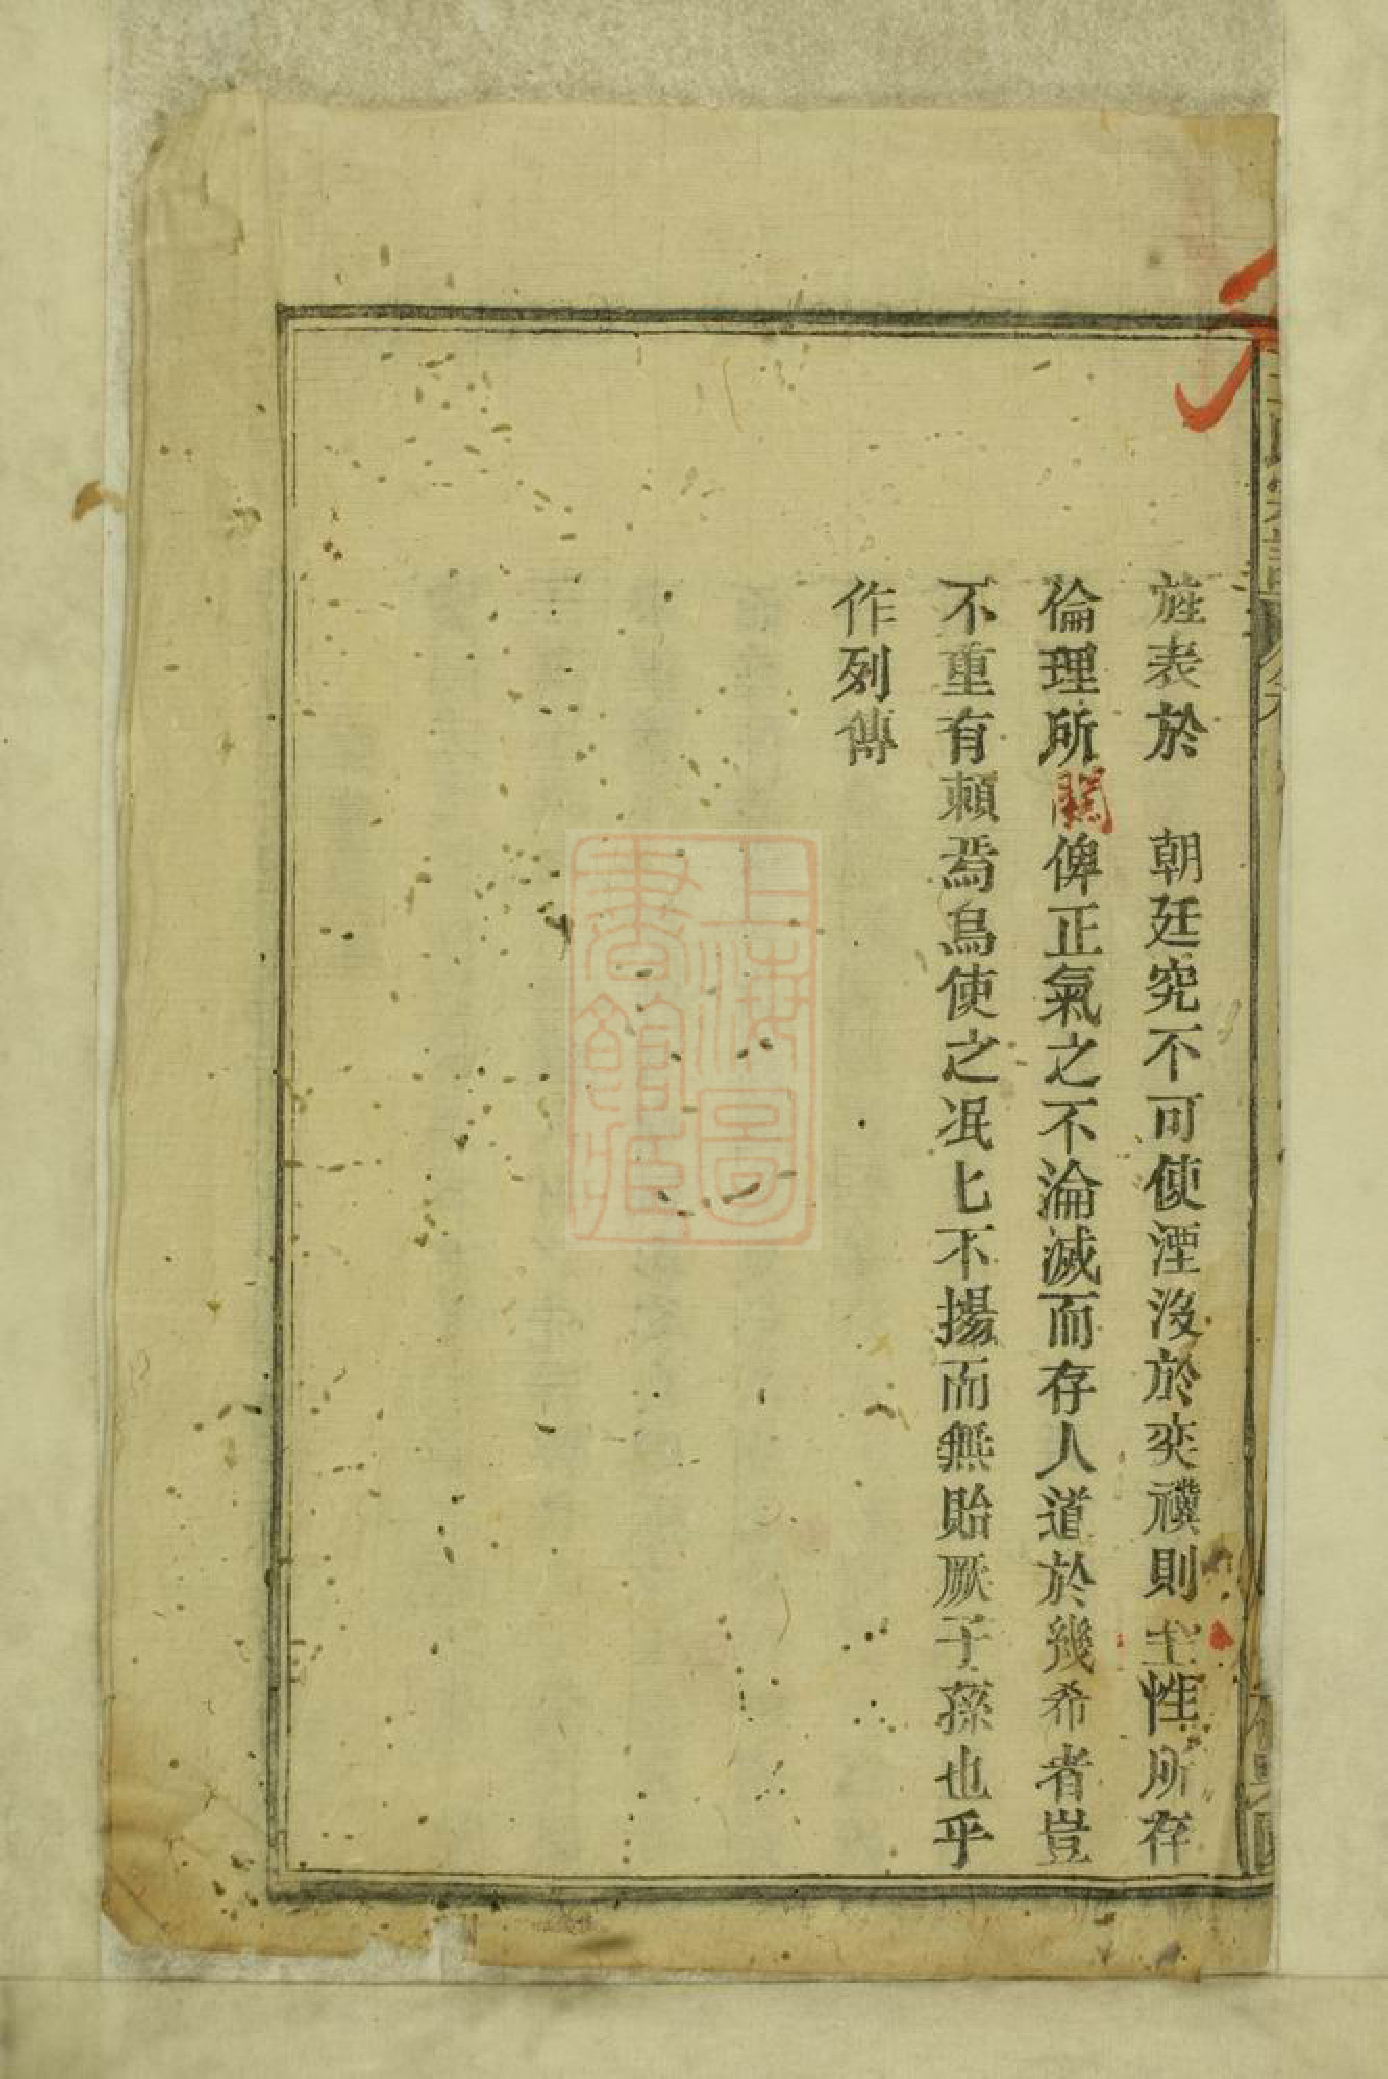 旌表於　朝廷究不可使湮沒於奕禩則主性所存
倫理所關俾正氣之不淪滅而存人道於幾希者豈
不重有賴焉烏使之泯匕不揚而無貽厥子孫也乎
作列傳
上海圖
書館藏